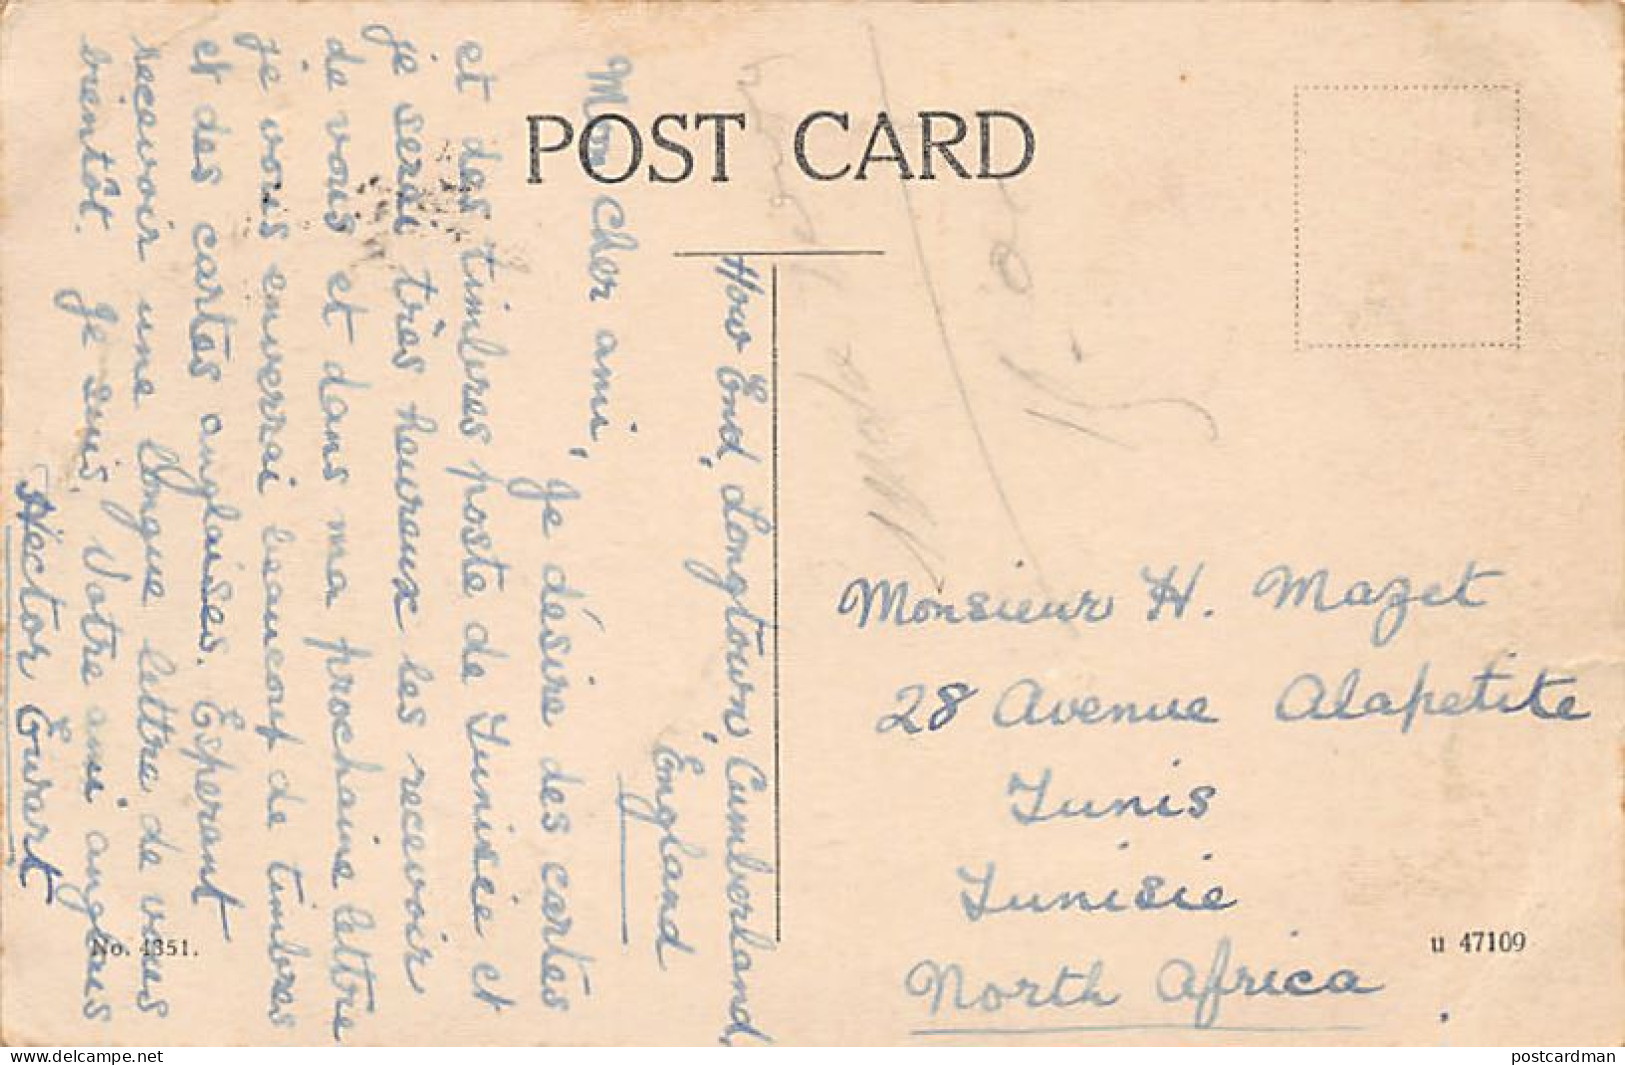 POST CARD
How End, Longtown, Cumberland,
England
Mon Cher ami,
Je désire des cartes
et des timbres poste de Tunisie et
je serai très heureux les recevoir
de vous et dans ma prochaine lettre
je vous enverrai beaucoup de timbres
et des cartes anglaises. Esperant
recevoir une longue lettre de vous
bientôt. Je suis, Votre ami anglais
Hector Ewart
Monsieur H. Mazet
28 Avenue Alapetite
Tunis
Tunisie
North Africa
No. 4351.
u 47109
postcardman
www.delcampe.net